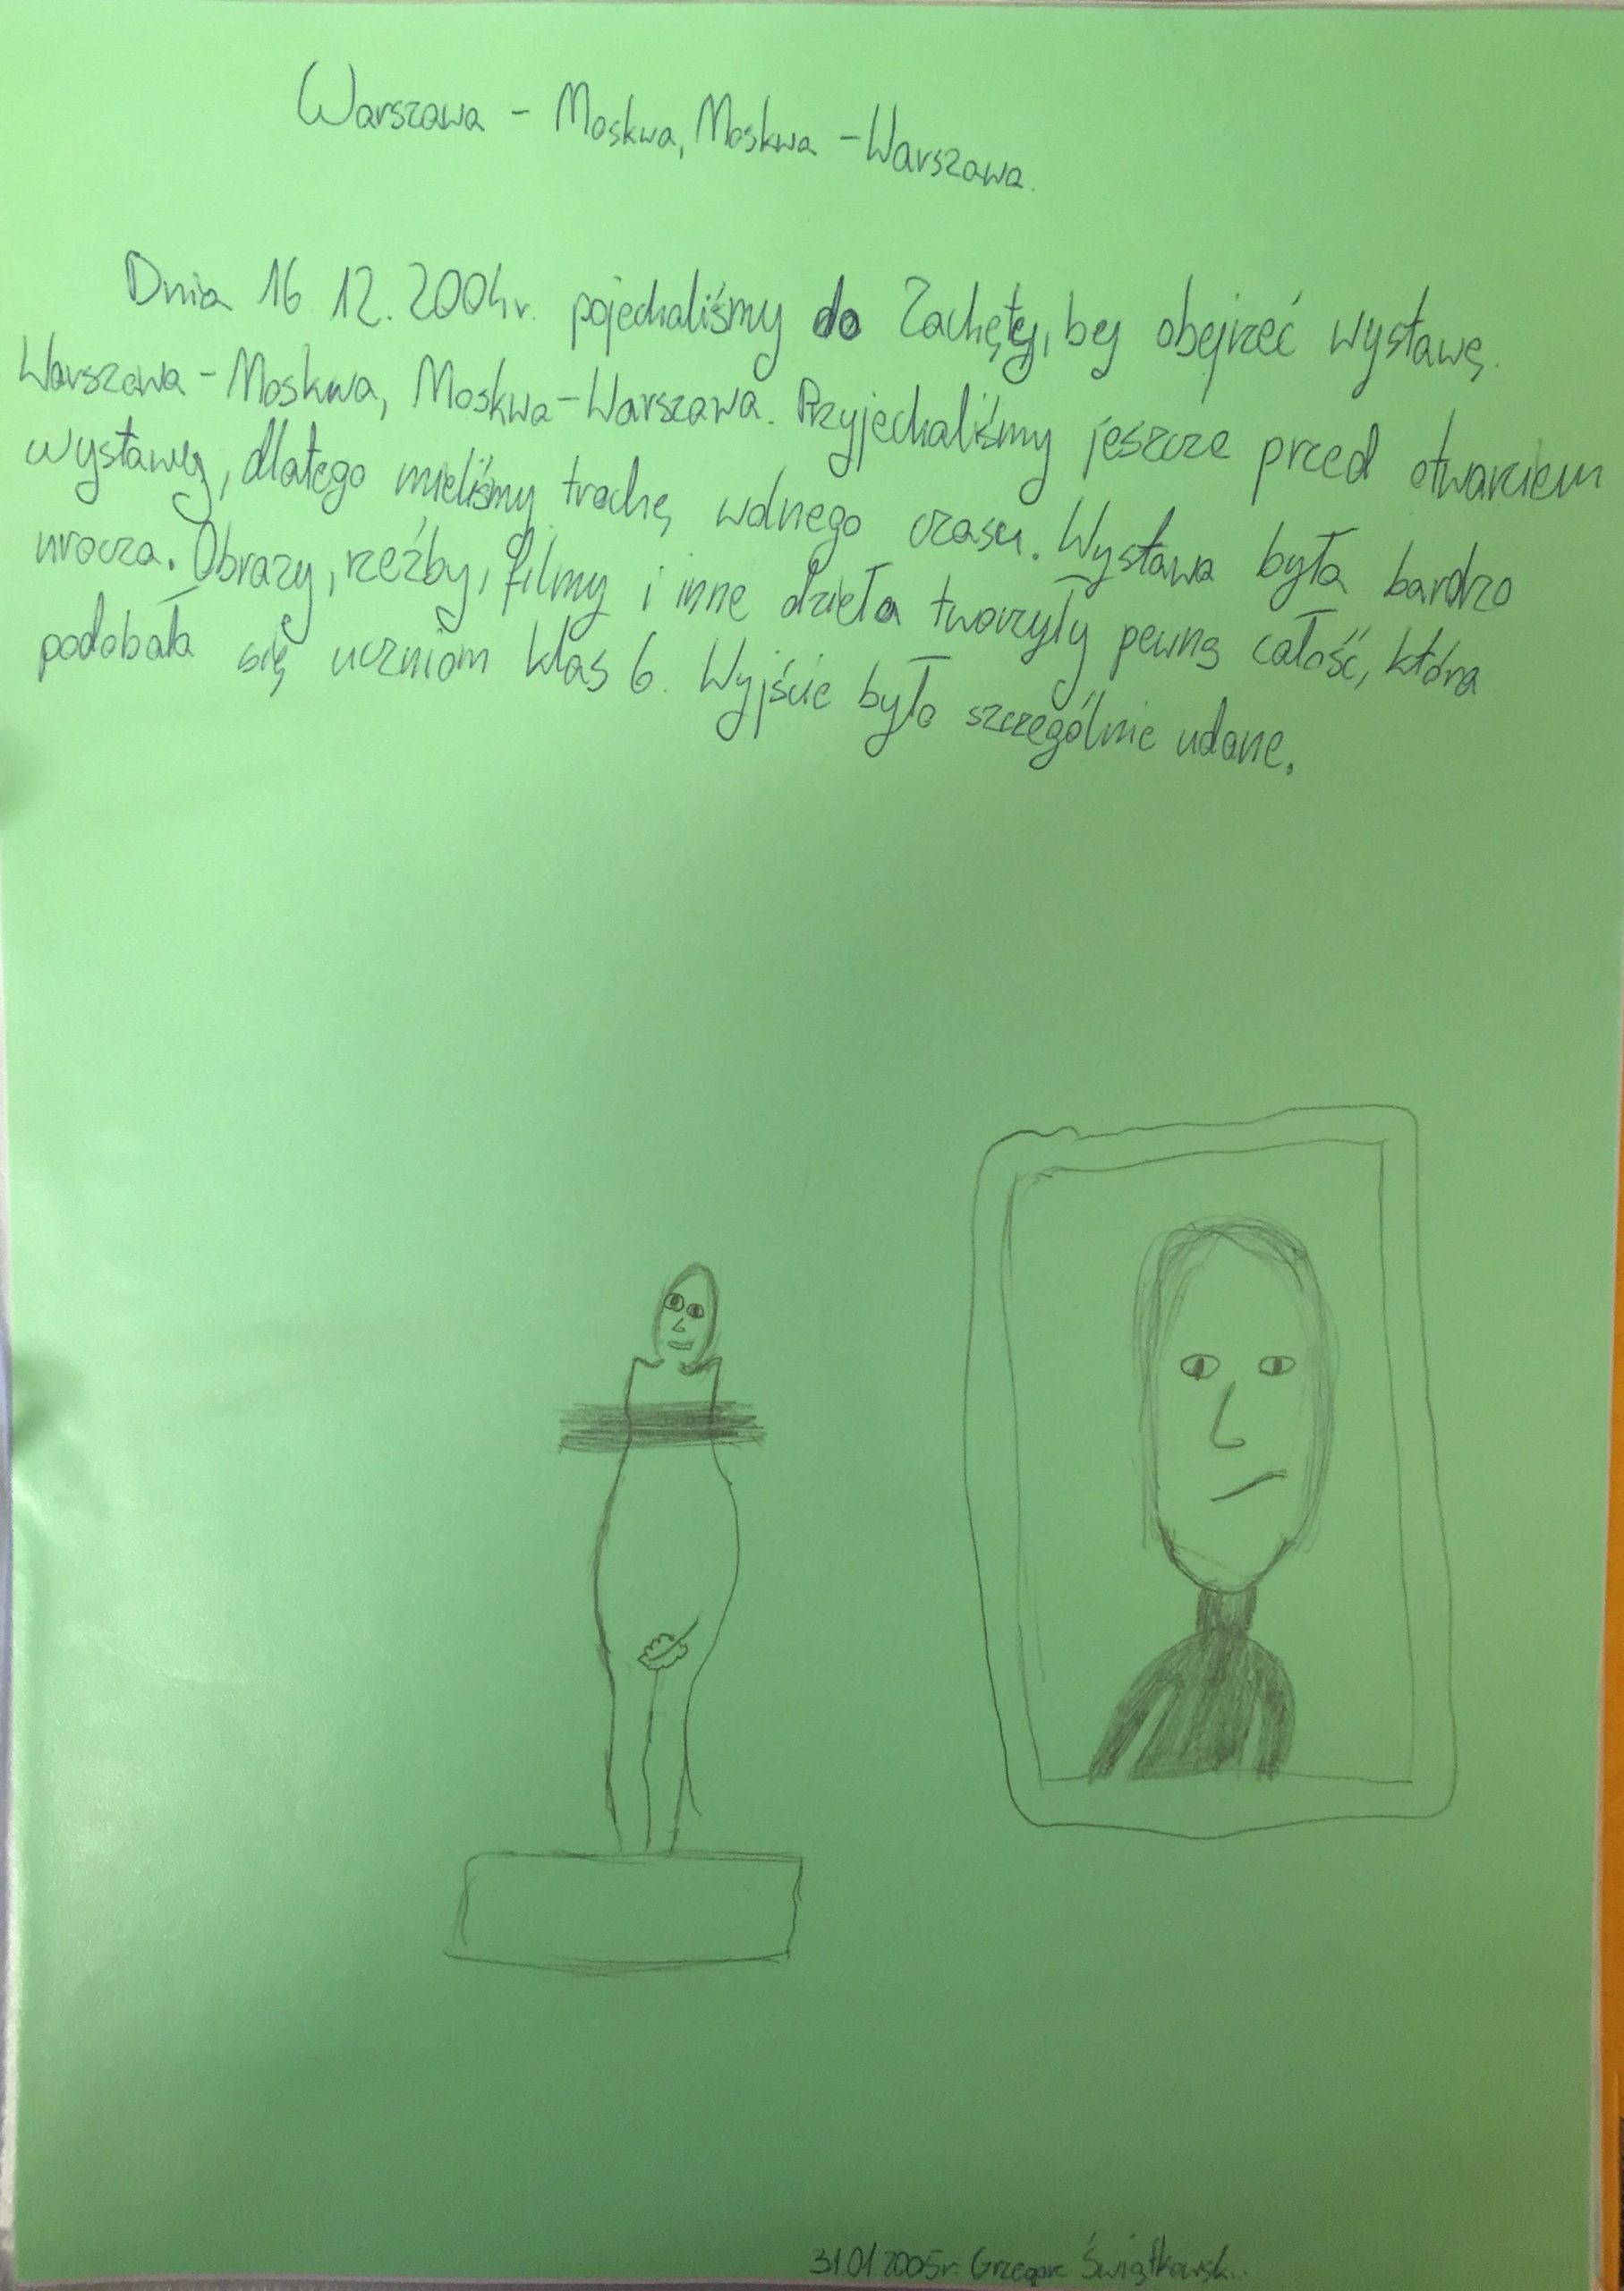 Warszawa - Moskwa, Moskwa - Warszawa.
Dnia 16.12.2004r. pojechaliśmy do Zachęty, by obejrzeć wystawę
Warszawa - Moskwa, Moskwa - Warszawa. Przyjechaliśmy jeszcze przed otwarciem
wystawy, dlatego mieliśmy trochę wolnego czasu. Wystawa była bardzo
urocza. Obrazy, rzeźby, filmy i inne dzieła tworzyły pewną całość, która
podobała się uczniom klas 6. Wyjście było szczególnie udane.
31.01.2005r. Grzegorz Świątkowski